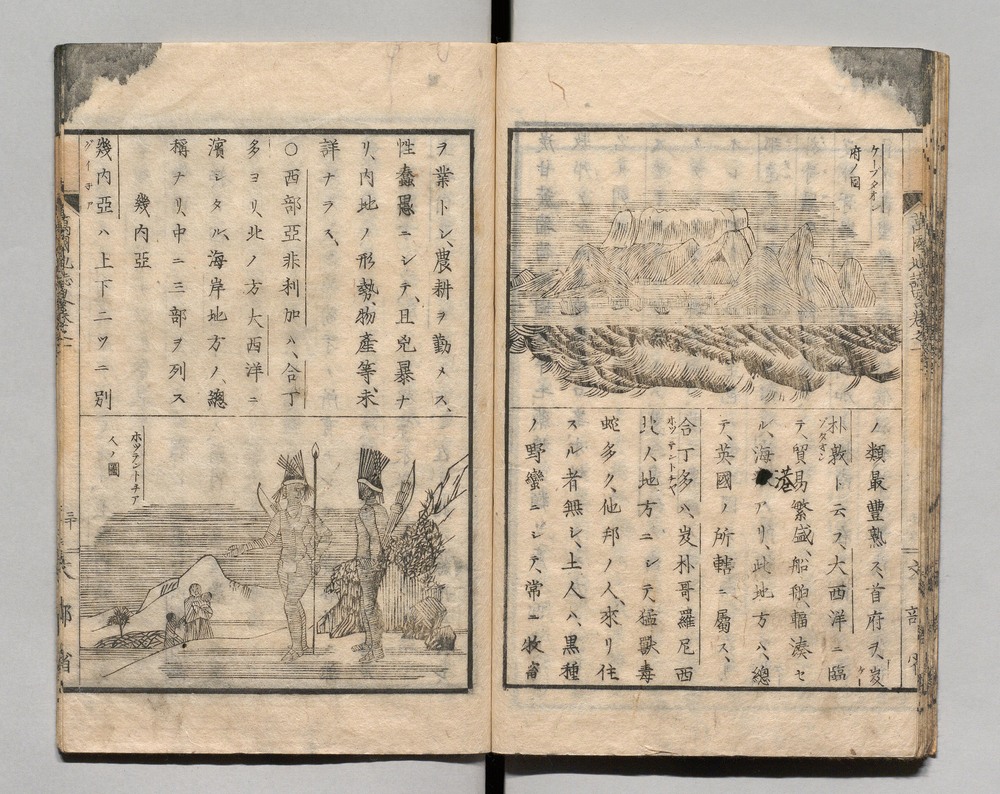 ケープタオン
府ノ圖
ノ類最豐熟ス首府ヲ岌
ケー
朴敦ト云フ、大西洋ニ臨
プタオン
テ、貿易繁盛、船舶輻湊セ
ル、海港アリ、此地方ハ、總
テ、英國ノ所轄ニ屬ス、
合丁多ハ、岌朴哥羅尼西
ホッテントチヤ
北ノ地方ニシテ、猛獸毒
蛇多ク、他邦ノ人、來リ住
スル者無シ、土人ハ、黑種
ノ野蠻ニシテ、常ニ牧畜
ヲ業トシ、農耕ヲ勤メス、
性蠢愚ニシテ、且兇暴ナ
リ、内地ノ形勢、物產等、未
詳ナラス、
○西部亞非利加ハ、合丁
多ヨリ、北ノ方大西洋ニ
濱シタル、海岸地方ノ、總
稱ナリ、中ニ三部ヲ列ス
幾内亞
幾内亞ハ上下二ツニ別
ホッテントチア
人ノ圖
萬國地誌畧卷之二
文部省